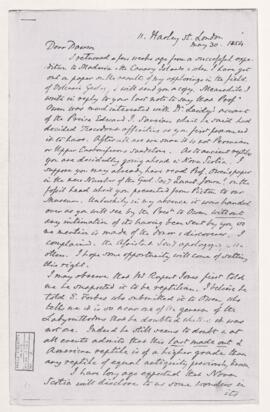 11. Harley St. London
May 30. 1854
Dear Dawson
I returned a few weeks ago from a successful expe-
dition to Madeira & the Canary Islands & when I have got
out a paper on the result of my explorings in the field
of Volcanic Geoly, I will send you a copy. Meanwhile I
write in reply to your last note to say that Prof
Owen was most interested with Dr
of the Prince Edward I. Saurian which he said had
decided Thecodont affinities as you first
it to have. After all are you sure it is not Permian
or Upper Carboniferous Sandstone. As to ancient reptiles
you are decidedly going ahead in Nova Scotia. I
suppose you may already have read Prof. Owen's paper
in the new Number of the Geol. Soc. Quart. Journl. on the
fossil head which you presented from Pictou to our
Museum. Unluckily in my absence it was handed
over as you will see by the Prest. to Owen, without
any intimation of its having been sent by you, so
no mention is made of the donor & discoverer. I
complained. The Assistant Secy. apologizing
often. I hope some opportunity will come of setting
this right.
I may observe that Mr Rupert Jones first told
me he suspected it to be reptilian. I believe he
told E. Forbes who submitted it to Owen, who
tells me it is so near one of the genera of the
Labyrinthodons that he doubted whether it was
not one. Indeed he still seems to doubt & at
all events admits that this last made out
American reptile is of a higher grade than
any reptile of equal antiquity previously known.
I have long ago expected that Nova
Scotia will disclose to us some wonders in
its